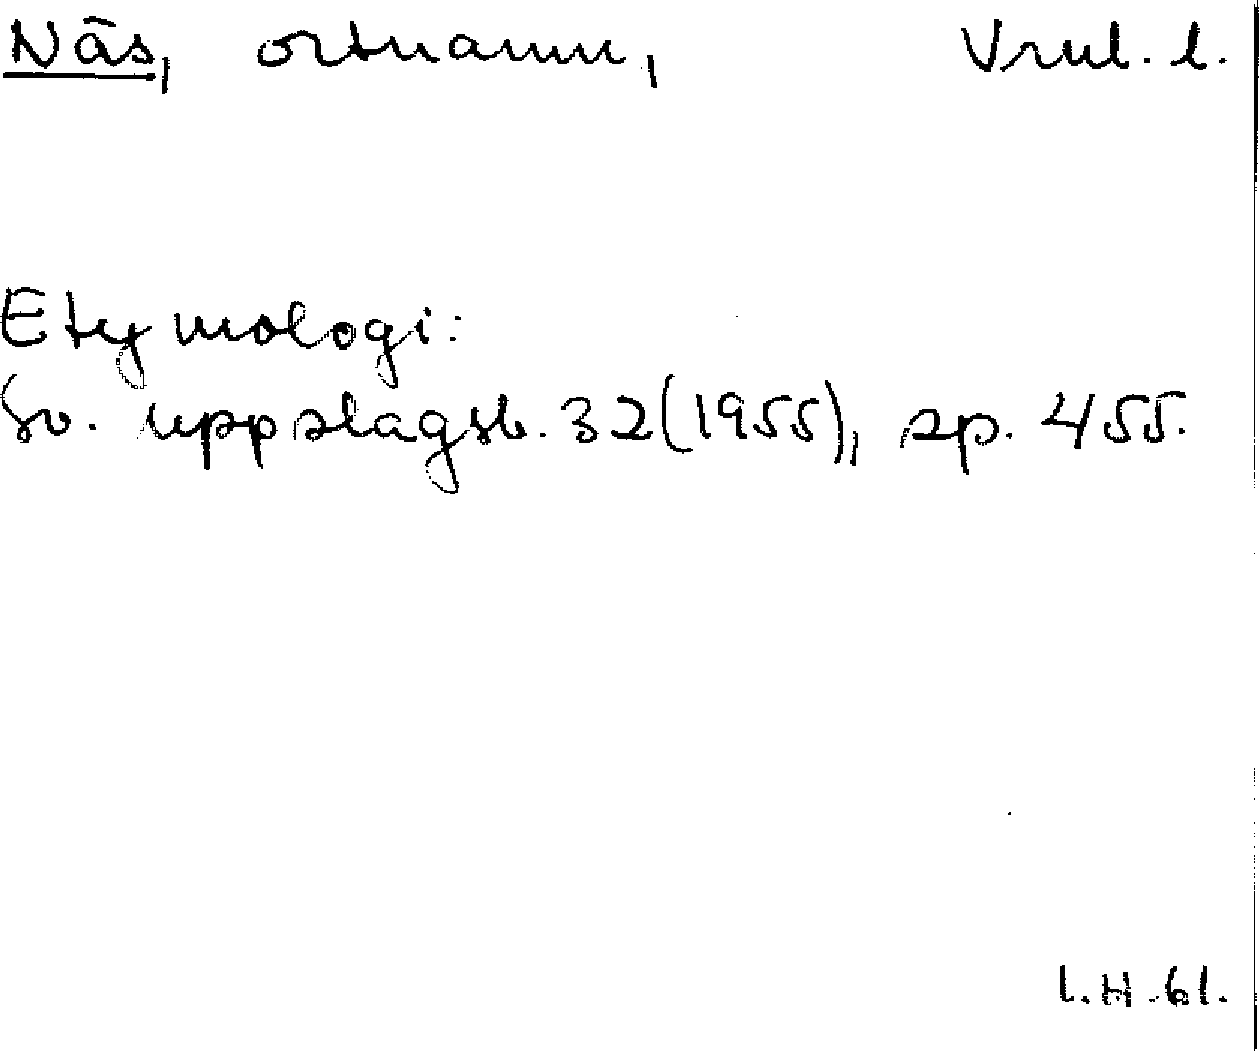 Näs, ortnamn, Vrml. l.
Etymologi:
Sv. uppslagsb. 32(1955), sp. 455.
l.H.61.